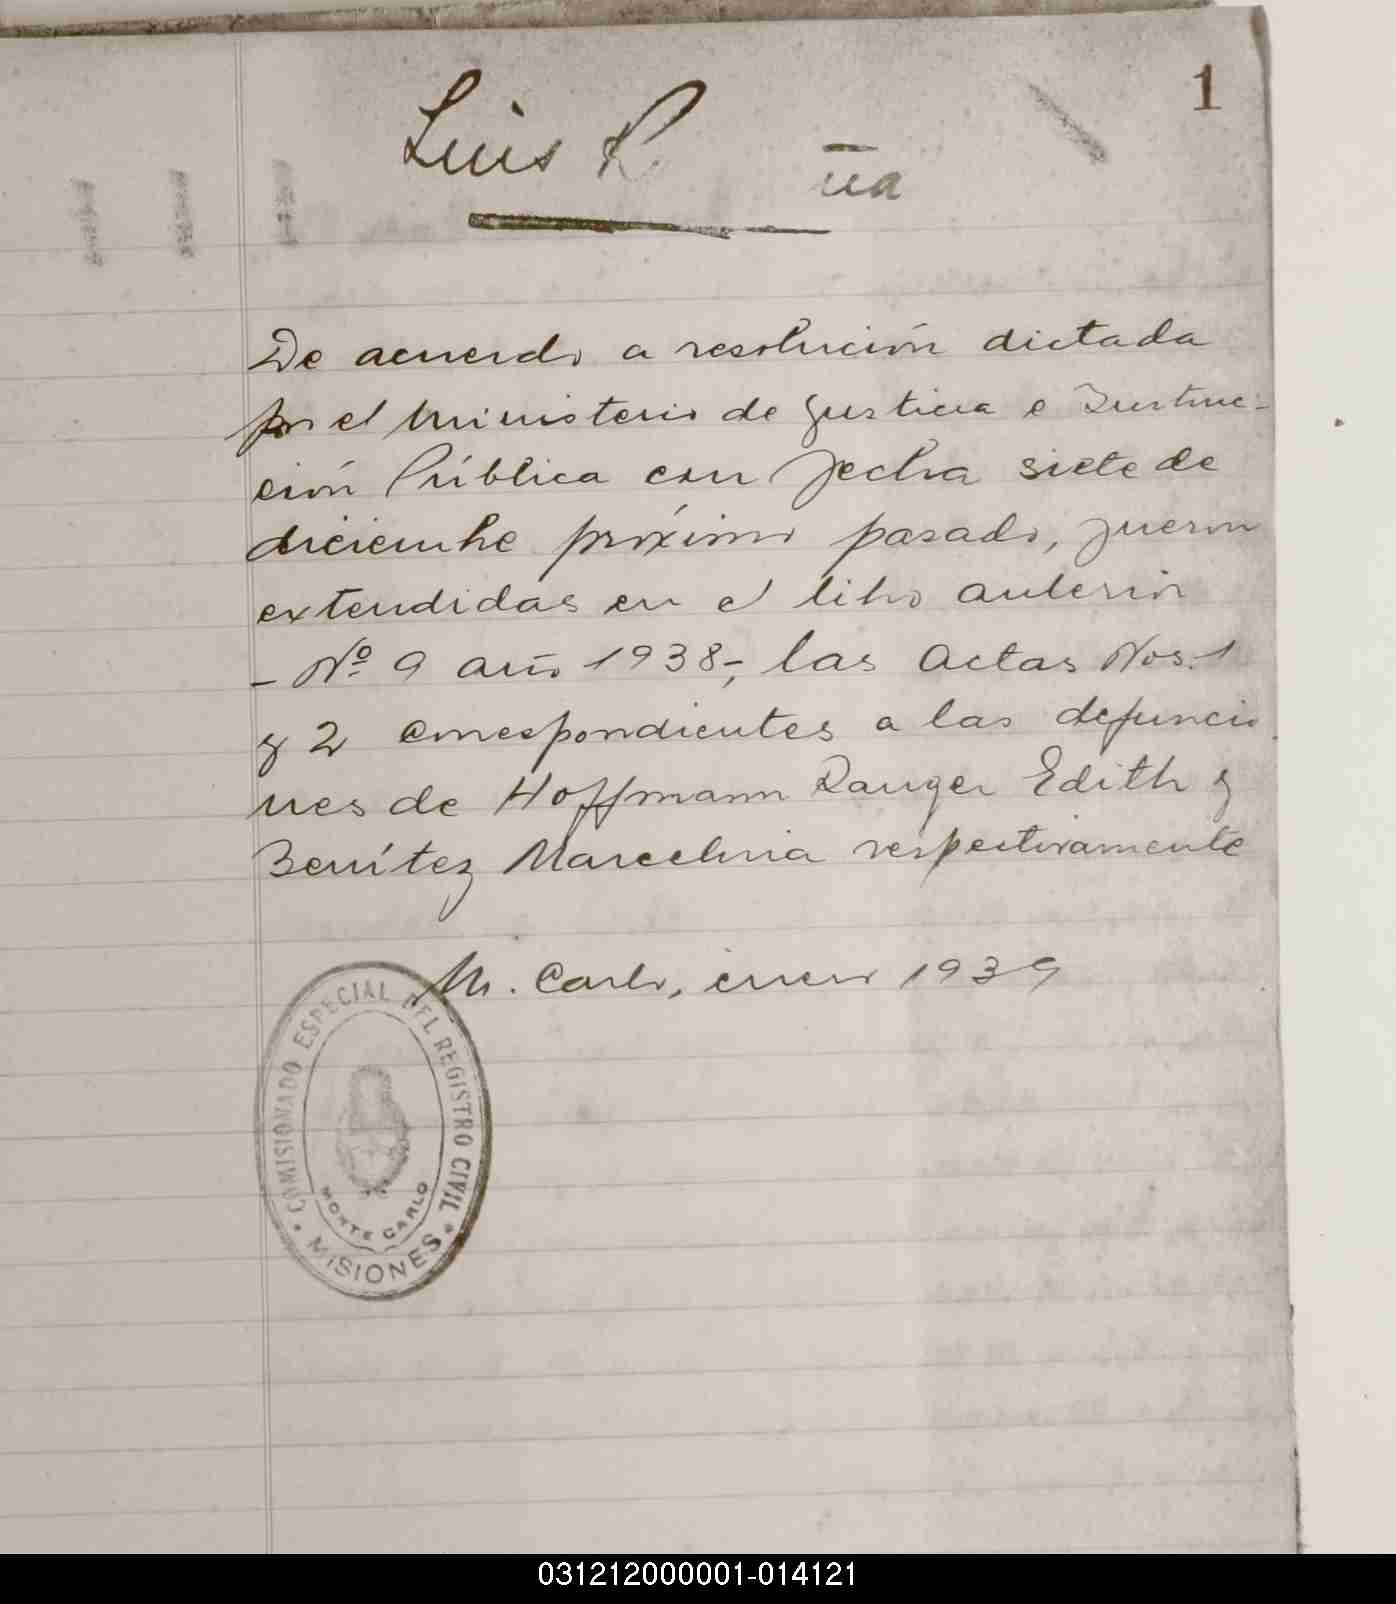 1
Luis R ũa
De acuerdo a resolución dictada
por el Ministerio de Justicia e Instruc-
ción Pública con fecha siete de
diciembre próximo pasado, fueron
extendidas en el libro anterior
- Nº 9 año 1938-, las actas Nos. 1
y 2 correspondientes a las defuncio
nes de Hoffmann Ranger Edith y
Benítez Marcelina respectivamente
M. Carlo, enero 1939
COMISIONADO ESPECIAL DEL REGISTRO CIVIL
MONTE CARLO
MISIONES
031212000001-014121